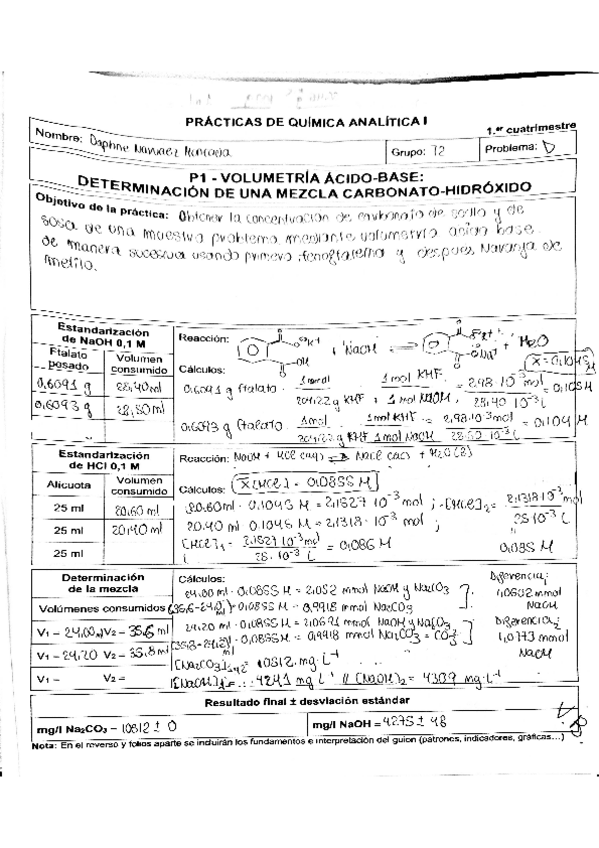 PRÁCTICAS DE QUÍMICA ANALÍTICA I
1.er cuatrimestre
Nombre: Daphne Narvaez
Grupo: T2
Problema: D
P1 - VOLUMETRÍA ÁCIDO-BASE:
DETERMINACIÓN DE UNA MEZCLA CARBONATO-HIDRÓXIDO
Objetivo de la práctica: Obtener la concentración de carbonato de sodio y de
sosa de una muestra problema mediante volumetría acido base
de manera sucesiva usando primero fenoftaleina y despues Naranja de
Metilo.
Estandarización
de NaOH 0,1 M
Ftalato pesado
Volumen consumido
0,6091 g 28,40ml
0,6093 g 28,80ml
Reacción: + NaOH + H2O
Cálculos: x̄ = 0,1045 M
0,6091 g ftalato · 1 mol / 204,22 g KHF · 1 mol KHF / 1 mol NaOH = 2,98·10⁻³ mol / 28,40·10⁻³ L = 0,105 M
0,6093 g ftalato · 1 mol / 204,22 g KHF · 1 mol KHF / 1 mol NaOH = 2,98·10⁻³ mol / 28,80·10⁻³ L = 0,104 M
Estandarización
de HCl 0,1 M
Alícuota
Volumen consumido
25 ml 20,60 ml
25 ml 20,40 ml
25 ml
Reacción: NaOH + HCl (aq) → NaCl (aq) + H2O (l)
Cálculos: x̄ [HCl] = 0,0855 M
20,60 ml · 0,1045 M = 2,1527·10⁻³ mol ; [HCl]2 = 2,1318·10⁻³ mol / 25·10⁻³ L
20,40 ml · 0,1045 M = 2,1318·10⁻³ mol ; 0,085 M
[HCl]1 = 2,1527·10⁻³ mol / 25·10⁻³ L = 0,086 M
Determinación
de la mezcla
Volúmenes consumidos
V1 = 24,00 ml V2 = 35,6 ml
V1 = 24,20 V2 = 35,8 ml
V1 = V2 =
Cálculos:
24,00 ml · 0,0855 M = 2,052 mmol NaOH y Na2CO3
(35,6-24,0) · 0,0855 M = 0,9918 mmol Na2CO3
Diferencia1 1,0602 mmol NaOH
24,20 ml · 0,0855 M = 2,0691 mmol NaOH y Na2CO3
(35,8-24,2) · 0,0855 M = 0,9918 mmol Na2CO3 = CO3²⁻
Diferencia2 1,0773 mmol NaOH
[Na2CO3]1,2 = 10512 mg·L⁻¹
[NaOH]1 = 4241 mg L⁻¹ // [NaOH]2 = 4309 mg·L⁻¹
Resultado final ± desviación estándar
mg/l Na2CO3 = 10512 ± 0
mg/l NaOH = 4275 ± 48
Nota: En el reverso y folios aparte se incluirán los fundamentos e interpretación del guion (patrones, indicadores, gráficas...)